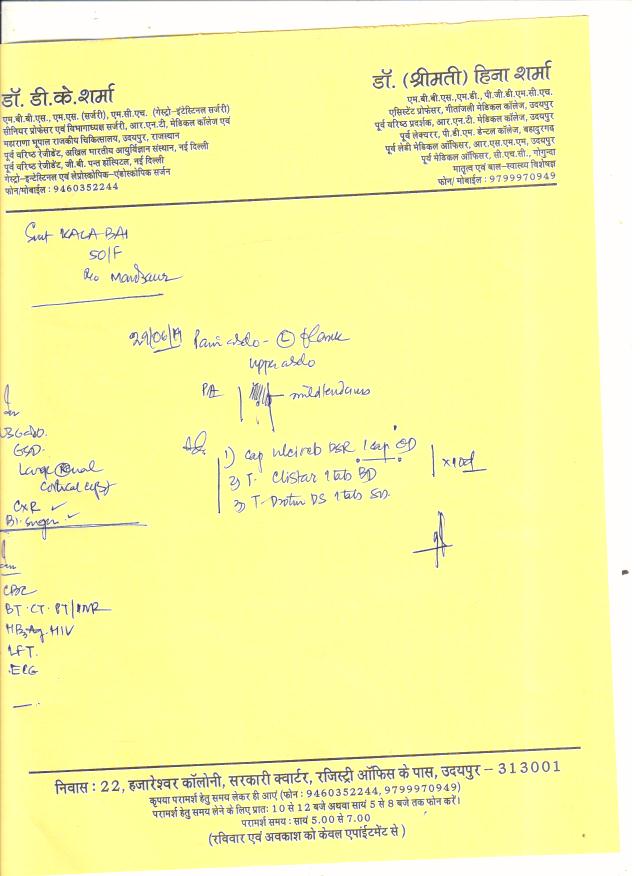 डॉ. डी.के.शर्मा
एम.बी.बी.एस., एम.एस. (सर्जरी), एम.सी.एच. (गेस्ट्रो-इंटेस्टिनल सर्जरी)
सीनियर प्रोफेसर एवं विभागाध्यक्ष सर्जरी, आर.एन.टी. मेडिकल कॉलेज एवं
महाराणा भूपाल राजकीय चिकित्सालय, उदयपुर, राजस्थान
पूर्व वरिष्ठ रेजीडेंट, अखिल भारतीय आयुर्विज्ञान संस्थान, नई दिल्ली
पूर्व वरिष्ठ रेजीडेंट, जी.बी. पन्त हॉस्पिटल, नई दिल्ली
गेस्ट्रो-इन्टेस्टिनल एवं लेप्रोस्कोपिक-एंडोस्कोपिक सर्जन
फोन/मोबाईल : 9460352244
डॉ. (श्रीमती) हिना शर्मा
एम.बी.बी.एस.,एम.डी., पी.जी.डी.एम.सी.एच.
एसिस्टेंट प्रोफेसर, गीतांजली मेडिकल कॉलेज, उदयपुर
पूर्व वरिष्ठ प्रदर्शक, आर.एन.टी. मेडिकल कॉलेज, उदयपुर
पूर्व लेक्चरर, पी.डी.एम. डेन्टल कॉलेज, बहादुरगढ़
पूर्व लेडी मेडिकल ऑफिसर, आर.एस.एम.एम, उदयपुर
पूर्व मेडिकल ऑफिसर, सी.एच.सी., गोगुन्दा
मातृत्व एवं बाल-स्वास्थ्य विशेषज्ञ
फोन/ मोबाईल : 9799970949
Smt KALA BAI
50/F
R/o Mandsaur
29/06/19 Pain abdo - (L) flank
upper abdo
PA mild tenderness
GSD.
Large Renal
Cortical cyst
CXR ✓
Bl. Sugar ✓
1) Cap DSR 1 cap OD
2) T. Clistar 1 tab BD
3) T- DS 1 tab
x10d
CBC
BT. CT. PT/INR
HBsAg. HIV
LFT.
ECG
निवास : 22, हजारेश्वर कॉलोनी, सरकारी क्वार्टर, रजिस्ट्री ऑफिस के पास, उदयपुर – 313001
कृपया परामर्श हेतु समय लेकर ही आएं (फोन : 9460352244, 9799970949)
परामर्श हेतु समय लेने के लिए प्रातः 10 से 12 बजे अथवा सायं 5 से 8 बजे तक फोन करें।
परामर्श समय : सायं 5.00 से 7.00
(रविवार एवं अवकाश को केवल एपांईटमेंट से )